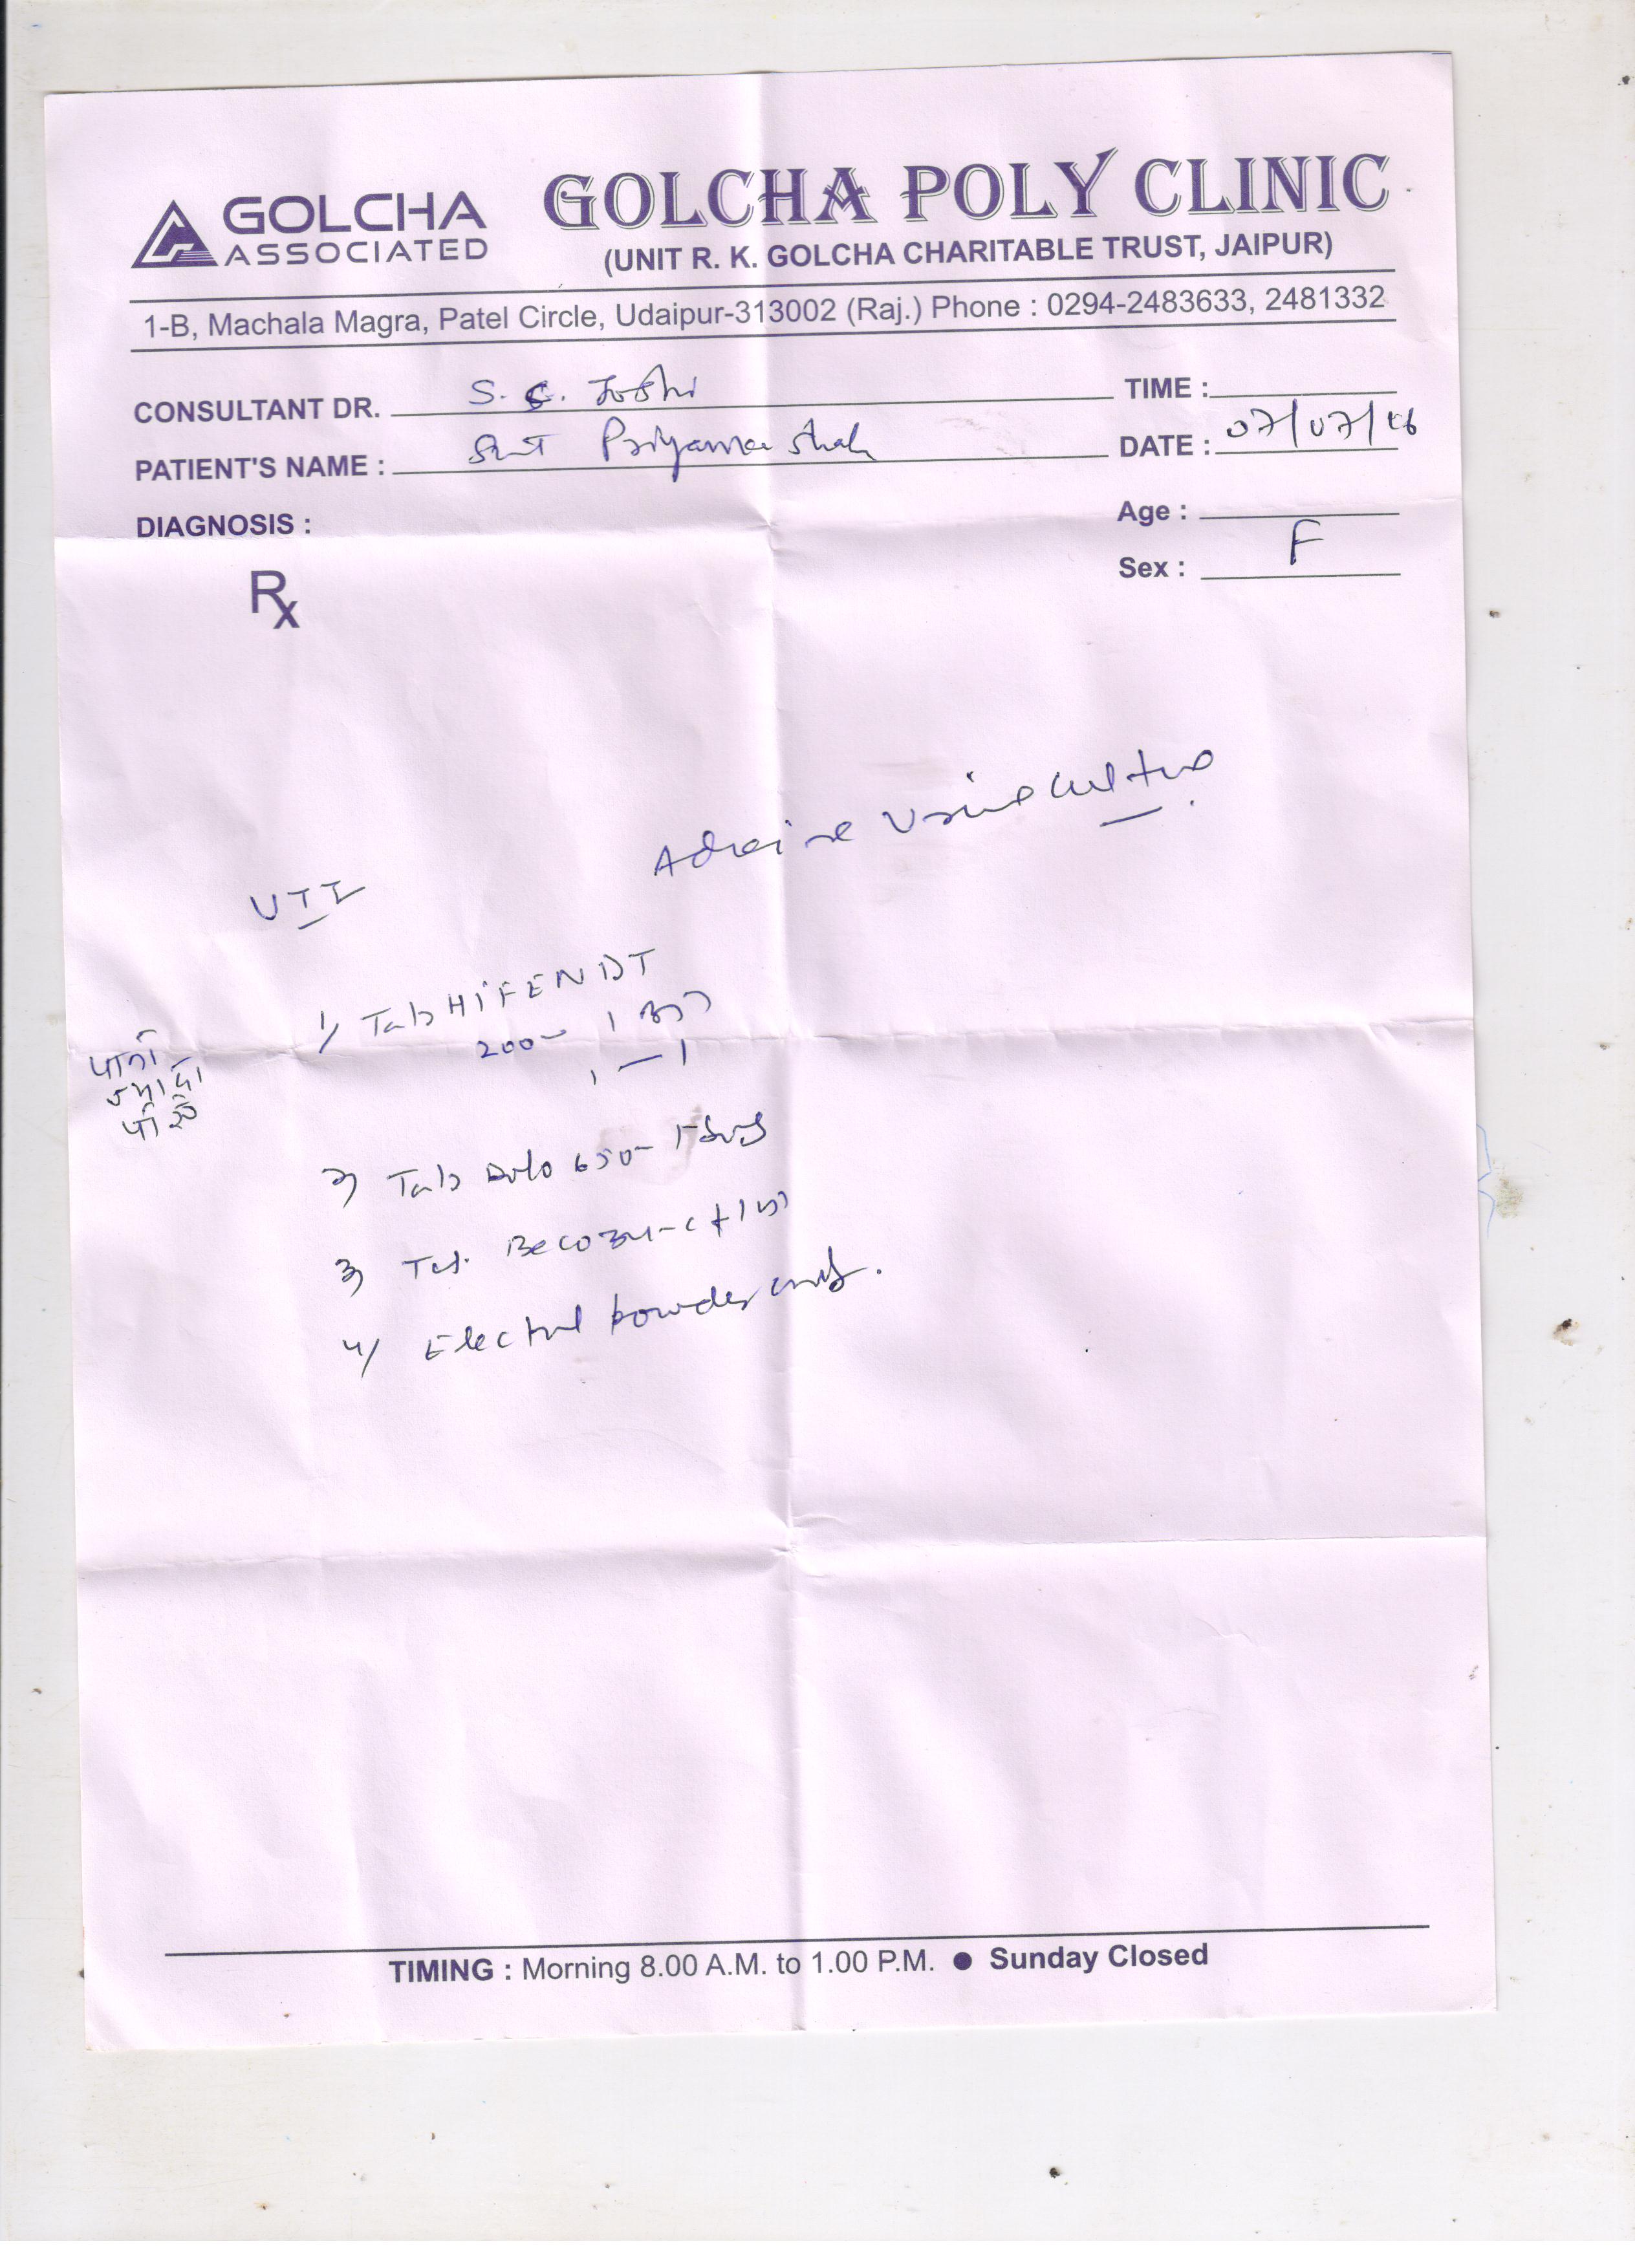 GOLCHA
ASSOCIATED
GOLCHA POLY CLINIC
(UNIT R. K. GOLCHA CHARITABLE TRUST, JAIPUR)
1-B, Machala Magra, Patel Circle, Udaipur-313002 (Raj.) Phone : 0294-2483633, 2481332
CONSULTANT DR. S. C. Joshi
TIME :
PATIENT'S NAME : Smt Shah
DATE : 07/07/16
DIAGNOSIS :
Age :
Sex : F
Rx
Advise Urine culture
UTI
1) Tab HIFEN DT
200 1
1 — 1
पानी
ज्यादा
पीवे
2) Tab Dolo 650
3) Tab. Becozin-c
4) Electral powder
TIMING : Morning 8.00 A.M. to 1.00 P.M. ● Sunday Closed